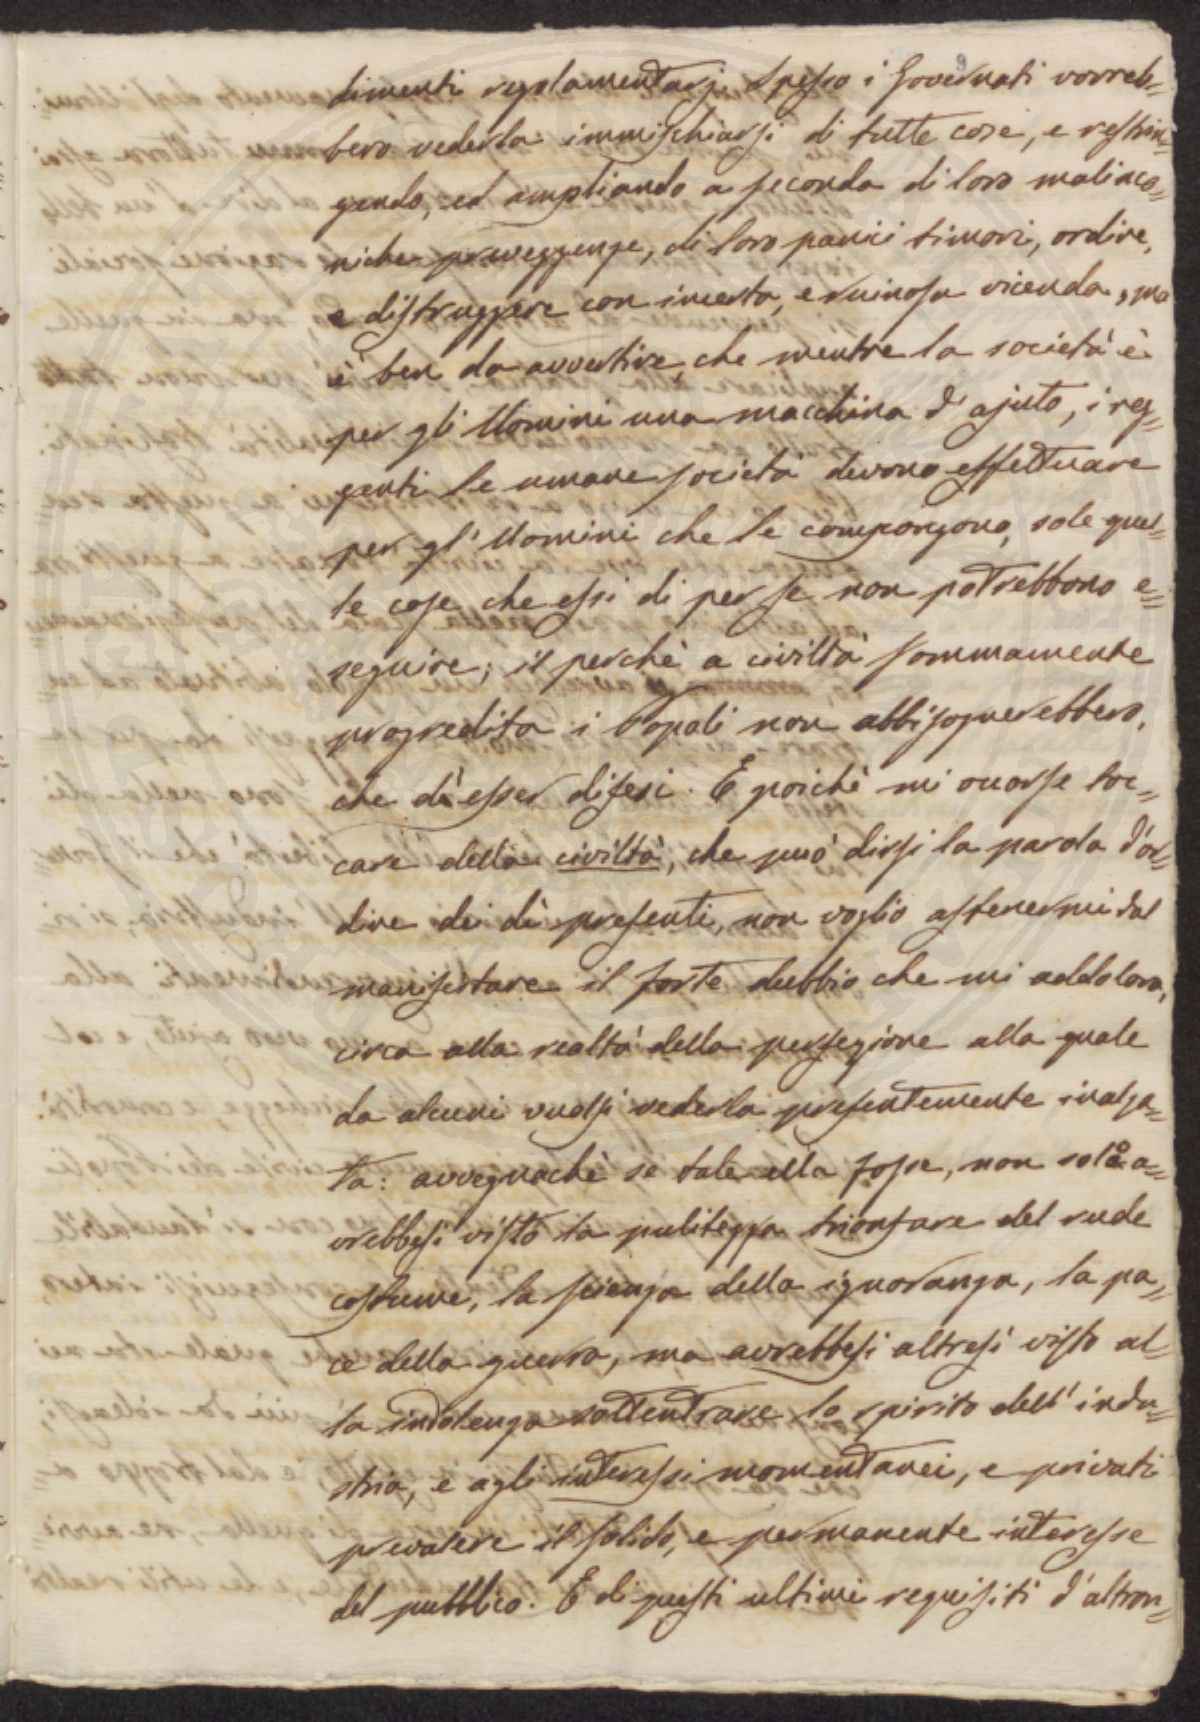 dimenti regolamentarj. Spesso i Governati vorreb=
bero vederla immischiarsi di tutte cose, e restrin=
gendo, ed ampliando a seconda di loro malinco=
niche preveggenze, di loro panici timori, ordire,
e distruggere con incerta, e ruinosa vicenda, ma
è ben da avvertire, che mentre la società è
per gli Uomini una macchina d'ajuto, i reg=
genti le umane società devono effettuare
per gl'Uomini che le compongono, sole quel=
le cose che essi di per se non potrebbono e=
seguire; il perchè a civiltà sommamente
progredita i Popoli non abbisognerebbero,
che di esser difesi. E poichè mi occorse toc=
care della civiltà, che può dirsi la parola d'or=
dine dei dì presenti, non voglio astenermi dal
manifestare il forte dubbio che mi addolora,
circa alla realtà della perfezione alla quale
da alcuni vuolsi vederla presentemente inalza=
ta: avvegnachè se tale ella fosse, non solo a=
vrebbesi visto la pulitezza trionfare del rude
costume, la scienza della ignoranza, la pa=
ce della guerra, ma avrebbesi altresì visto al=
la indolenza sottentrare lo spirito dell'indu=
stria, e agli interessi momentanei, e privati
prevalere il solido, e permanente interesse
del pubblico. E di questi ultimi requisiti d'altron=